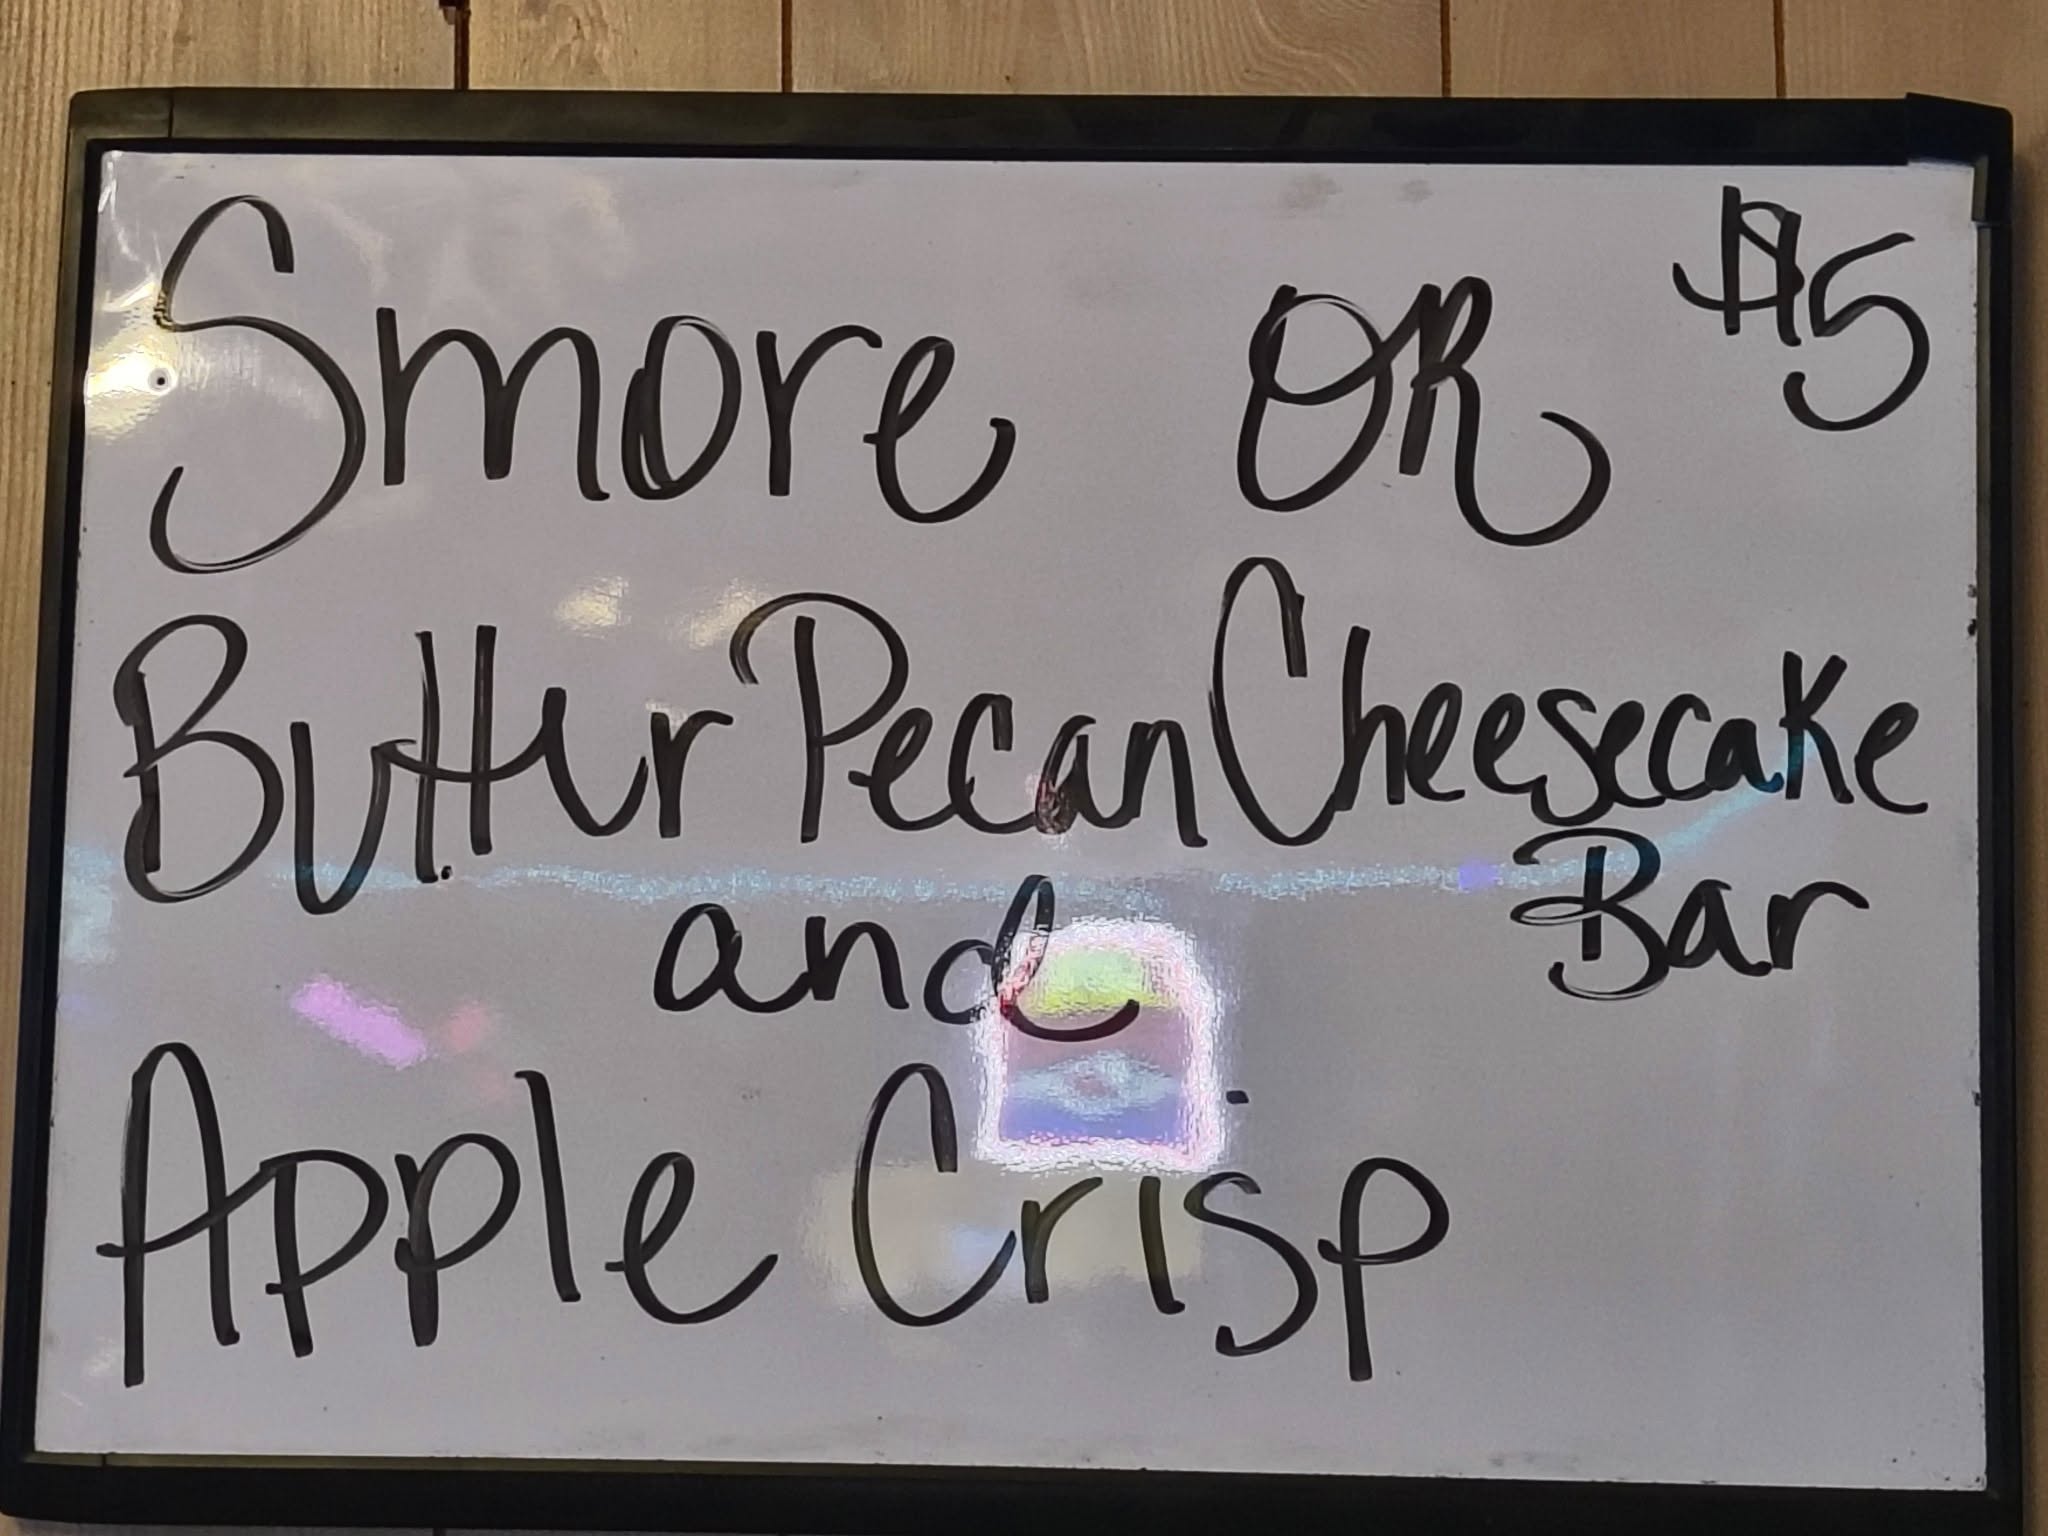 Smore OR $5
Butter Pecan Cheesecake
Bar
and
Apple Crisp